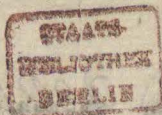 STAATS-
BIBLIOTHEK
BERLIN